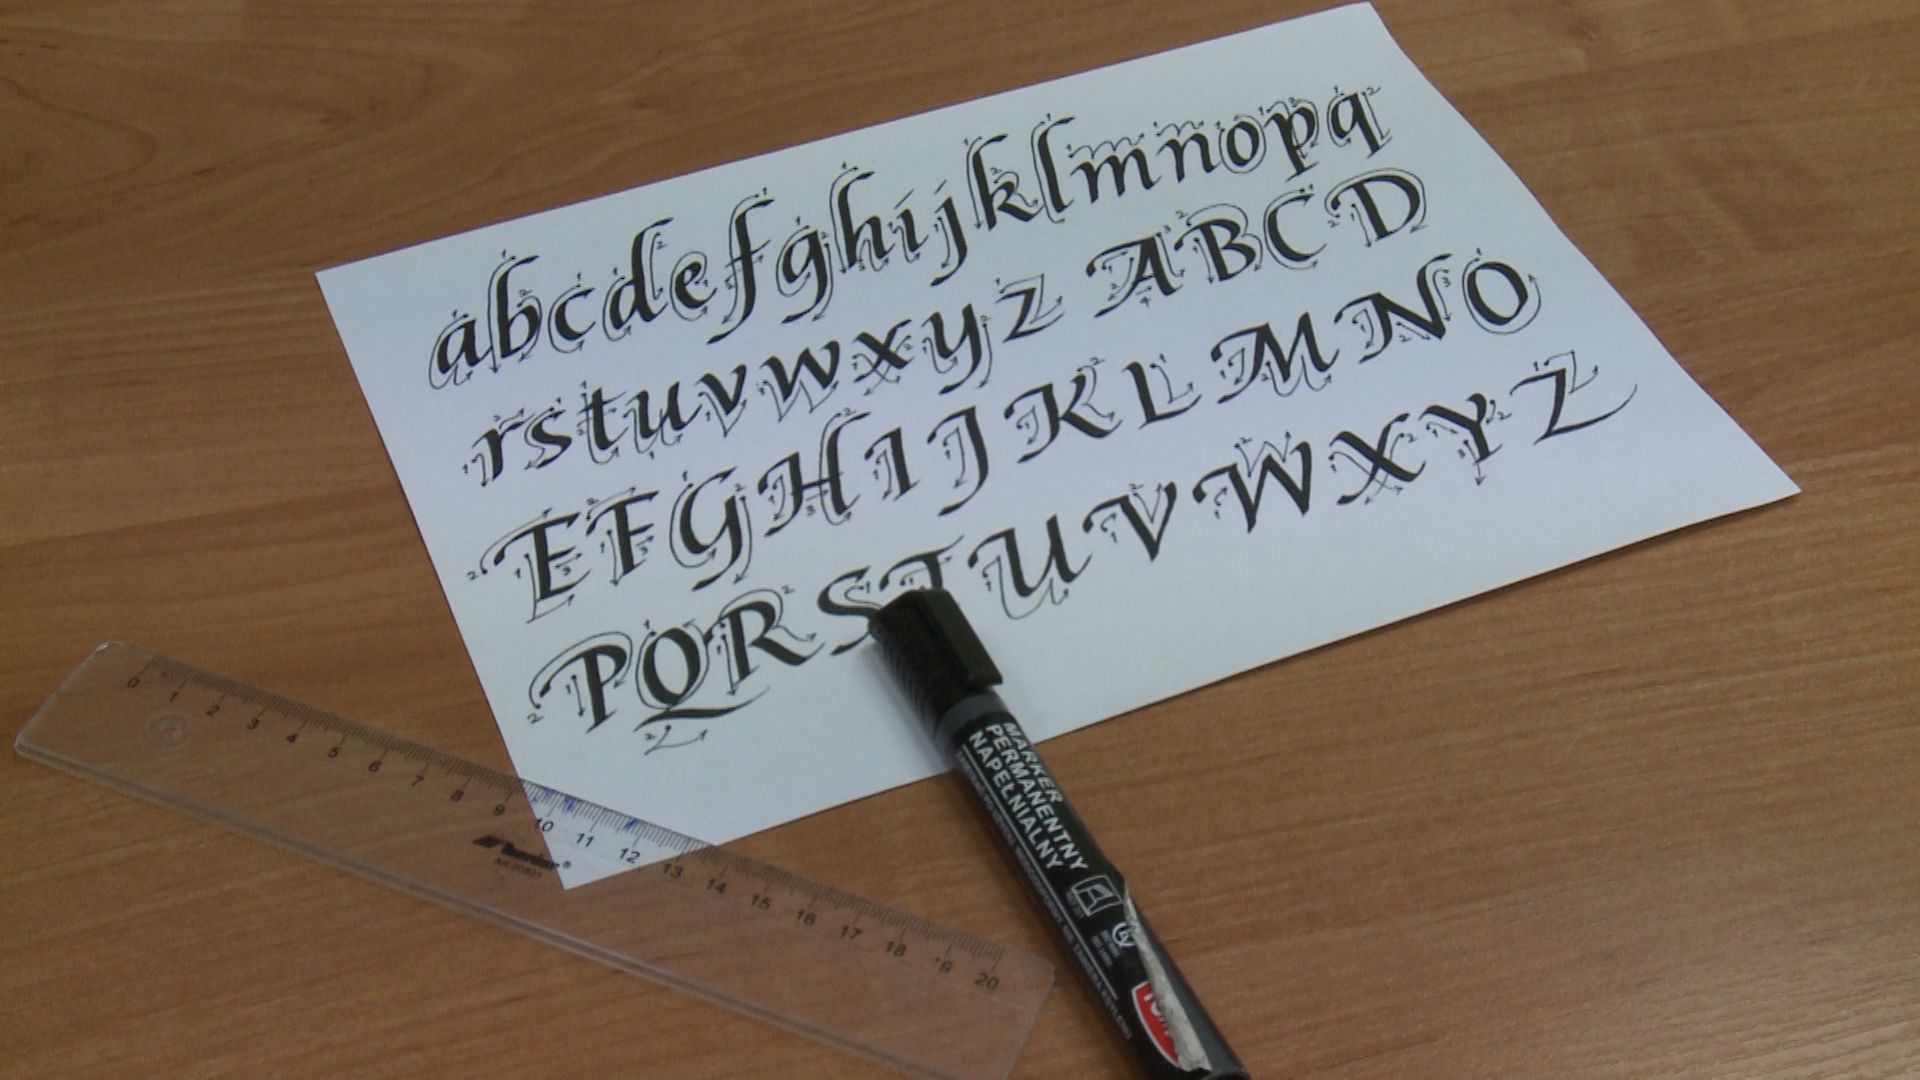 abcdefghijklmnopq
rstuvwxyz ABCD
EFGHIJKLMNO
PQRSTUVWXYZ
0 1 2 3 4 5 6 7 8 9 10 11 12 13 14 15 16 17 18 19 20
MARKER
PERMANENTNY
NAPEŁNIALNY